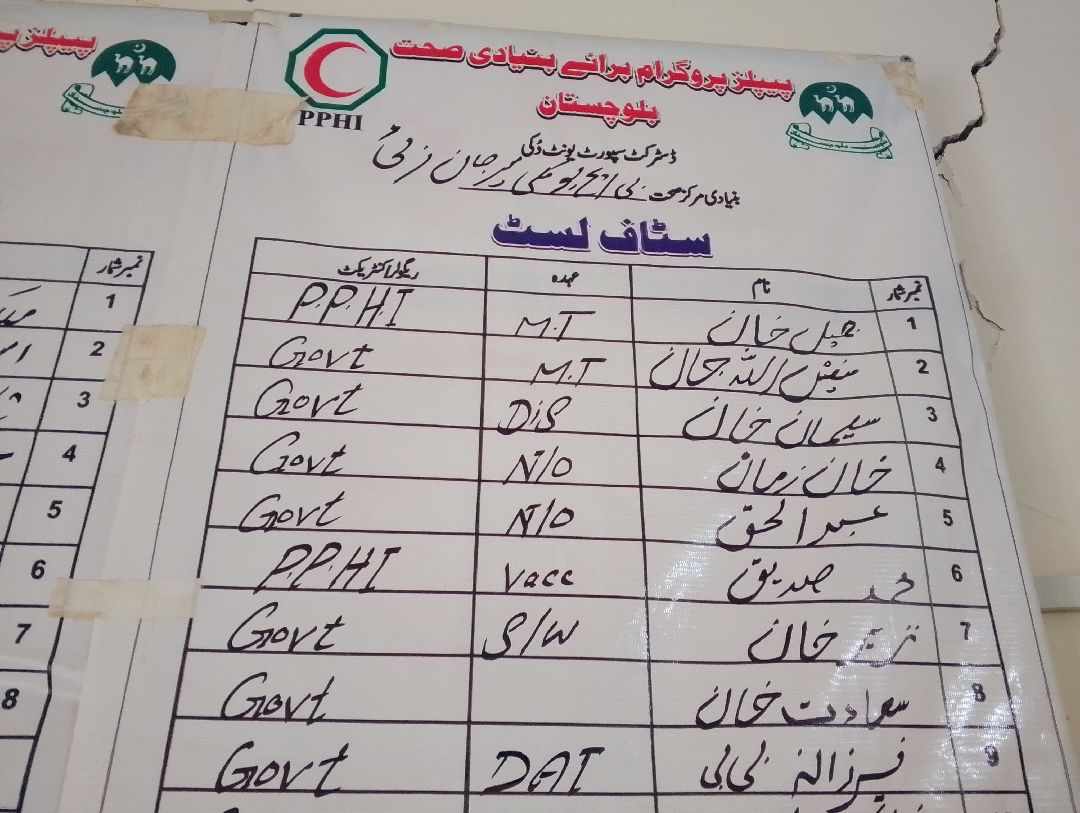 پیپلز پروگرام برائے بنیادی صحت
بلوچستان
PPHI
ڈسٹرکٹ سپورٹ یونٹ دُکی
بنیادی مرکز صحت بی ایچ یو کلی میر جان زئی
سٹاف لسٹ
نمبر شمار نام عہدہ ریگولر/کنٹریکٹ
1 خان M.T P.P.H.I
2 اللہ جان M.T Govt
3 سلیمان خان DiS Govt
4 خان زمان N/O Govt
5 عبدالحق N/O Govt
6 محمد صدیق Vacc P.P.H.I
7 خان S/W Govt
8 سعادت خان Govt
9 فرزانہ بی بی DAI Govt
پیپلز
نمبر شمار
1
2
3
4
5
6
7
8